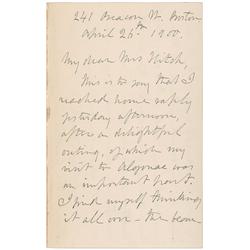 241 Beacon St. Boston
April 26th 1900.
My dear Mrs Hitch,
This is to say that I
reached home safely
yesterday afternoon,
after an delightful
outing, of which my
visit to Algonac was
an important part.
I find myself thinking
it all over – the beau